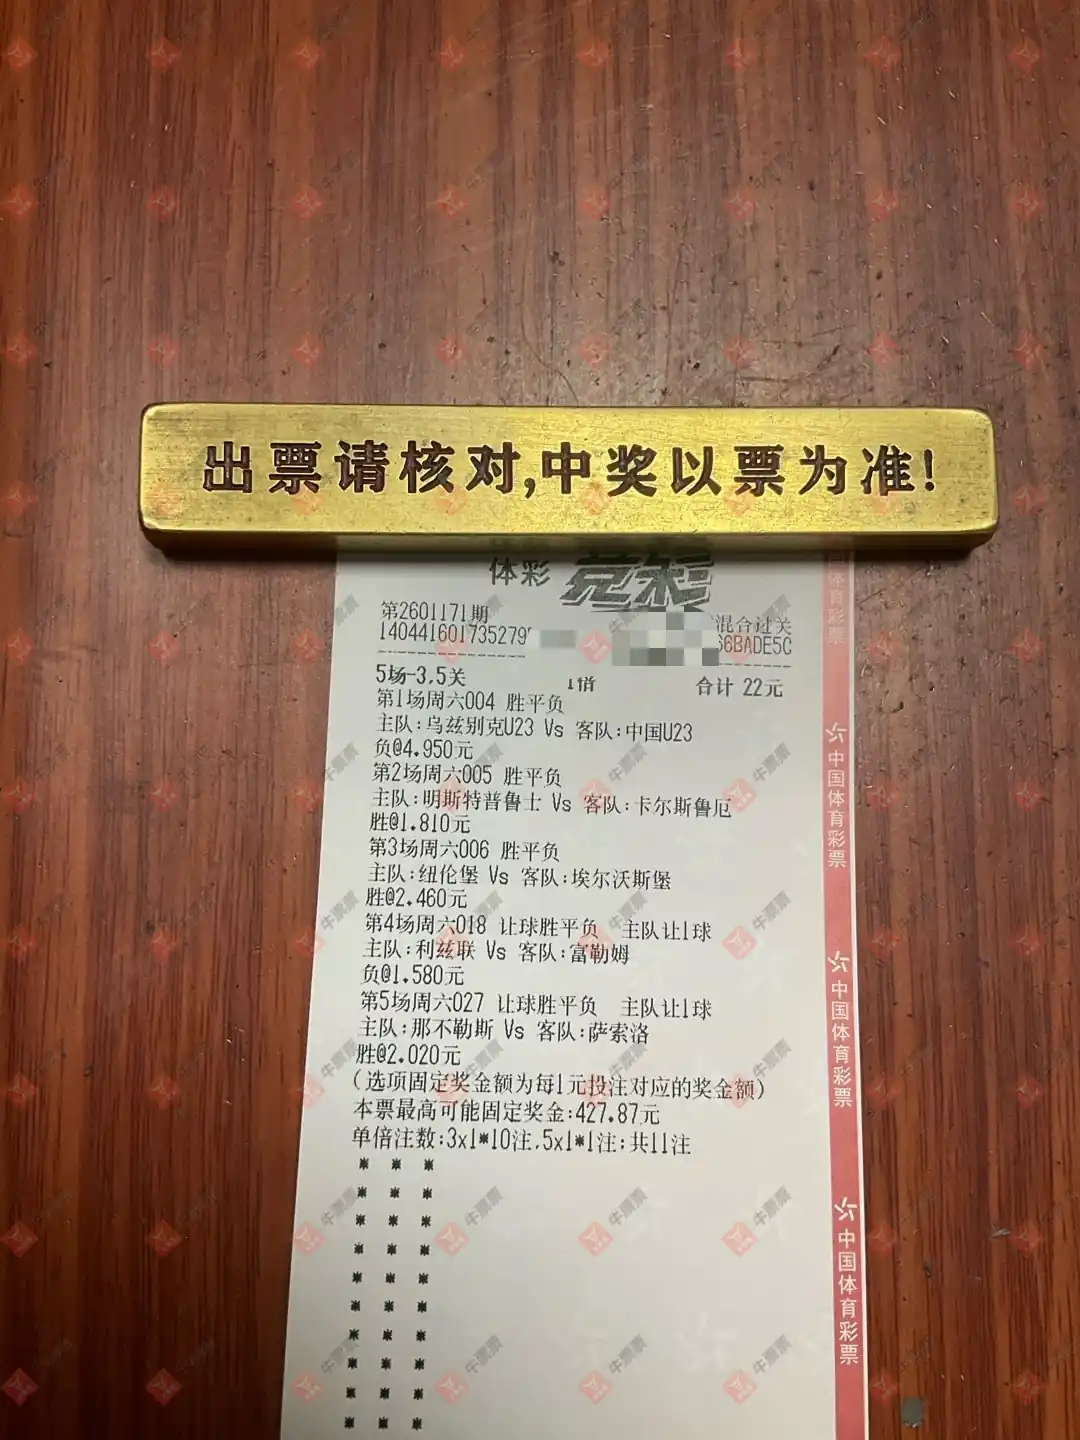 出票请核对,中奖以票为准!
体彩 竞彩
第2601171期
混合过关
140441601735279
66BADE5C
5场-3,5关 1倍 合计 22元
第1场周六004 胜平负
主队:乌兹别克U23 Vs 客队:中国U23
负@4.950元
第2场周六005 胜平负
主队:明斯特普鲁士 Vs 客队:卡尔斯鲁厄
胜@1.810元
第3场周六006 胜平负
主队:纽伦堡 Vs 客队:埃尔沃斯堡
胜@2.460元
第4场周六018 让球胜平负 主队让1球
主队:利兹联 Vs 客队:富勒姆
负@1.580元
第5场周六027 让球胜平负 主队让1球
主队:那不勒斯 Vs 客队:萨索洛
胜@2.020元
(选项固定奖金额为每1元投注对应的奖金额)
本票最高可能固定奖金:427.87元
单倍注数:3x1*10注,5x1*1注;共11注
中国体育彩票
中国体育彩票
中国体育彩票
牛票票